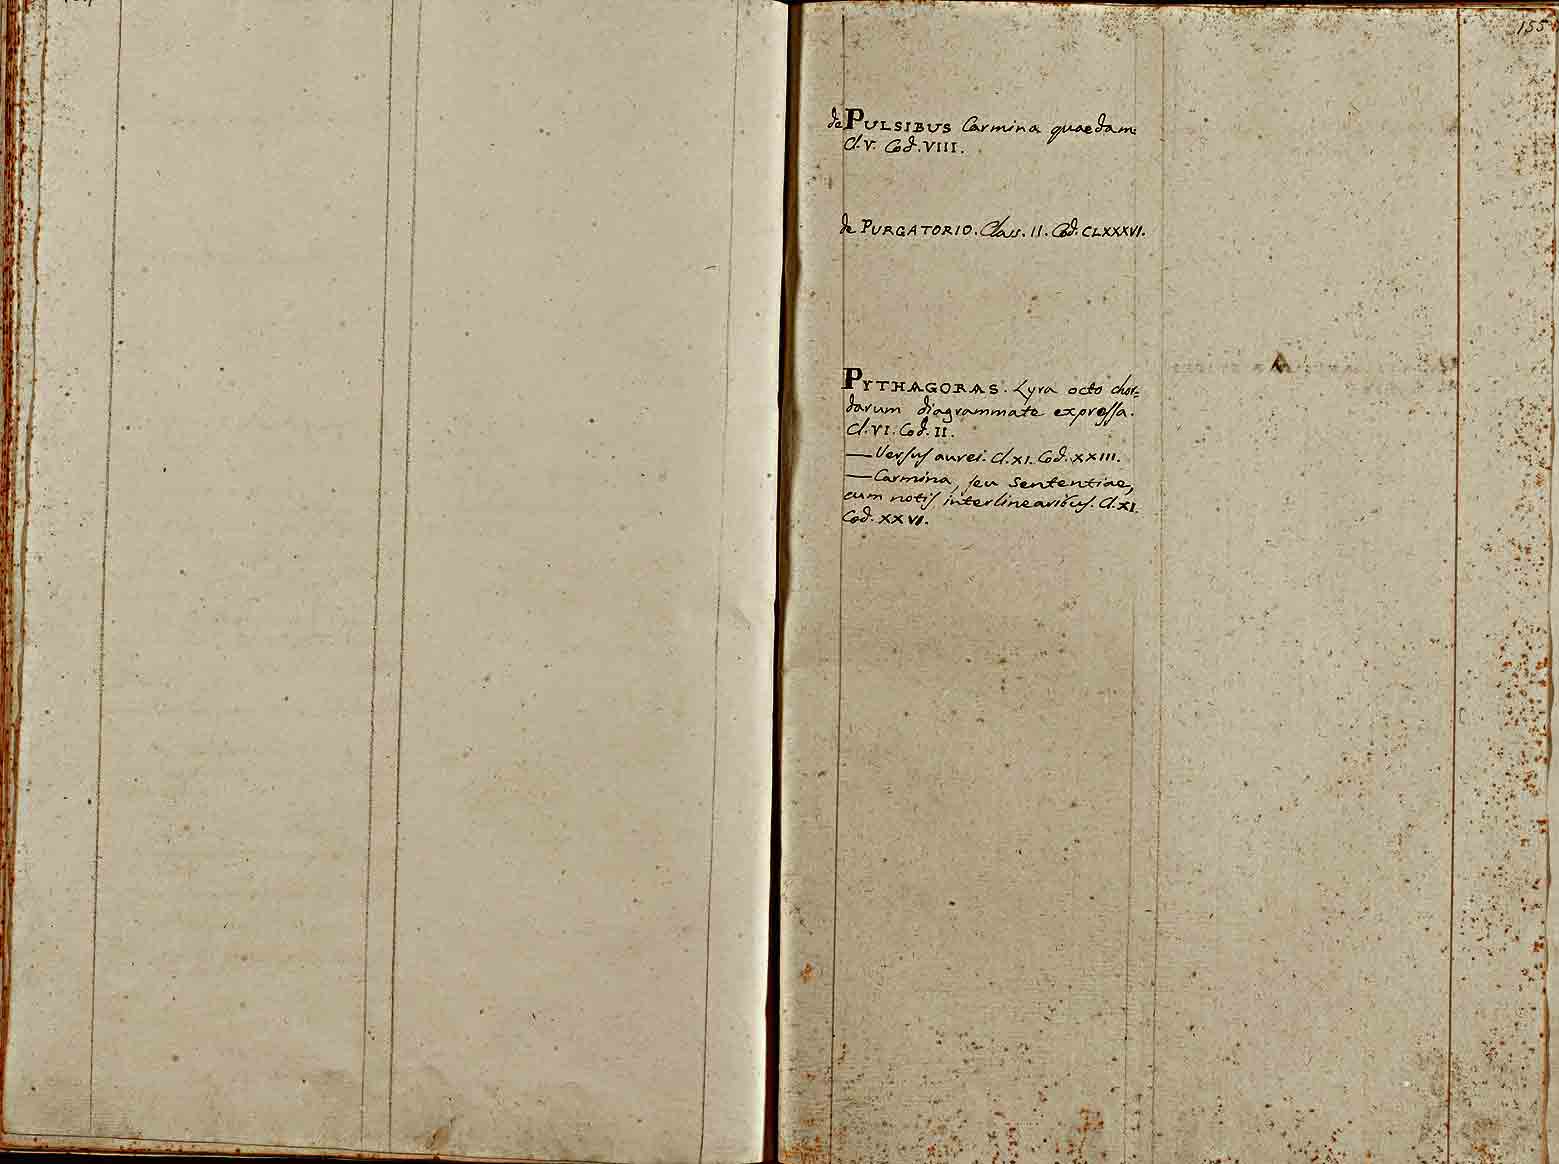 155
de PULSIBUS Carmina quaedam.
Cl. V. Cod. VIII.
de PURGATORIO. Class. II. Cod. CLXXXVI.
PYTHAGORAS. Lyra octo chor=
darum diagrammate expressa.
Cl. VI. Cod. II.
— Versus aurei. Cl. XI. Cod. XXIII.
— Carmina, seu Sententiae,
cum notis interlinearibus. Cl. XI.
Cod. XXVI.